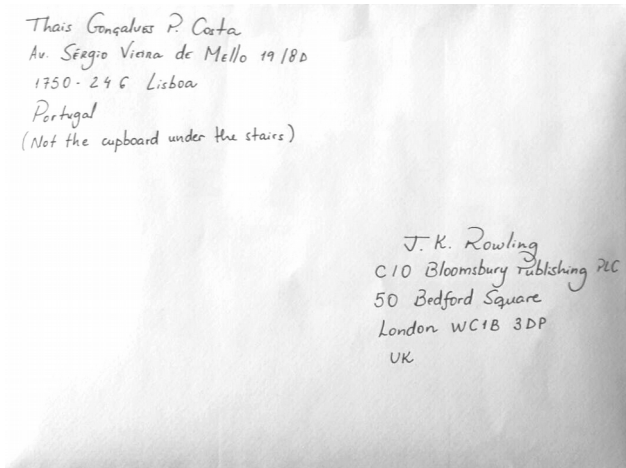 Thais Gonçalves P. Costa
Av. Sérgio Vieira de Mello 19/8D
1750-246 Lisboa
Portugal
(Not the cupboard under the stairs)
J. K. Rowling
C/O Bloomsbury Publishing PLC
50 Bedford Square
London WC1B 3DP
UK